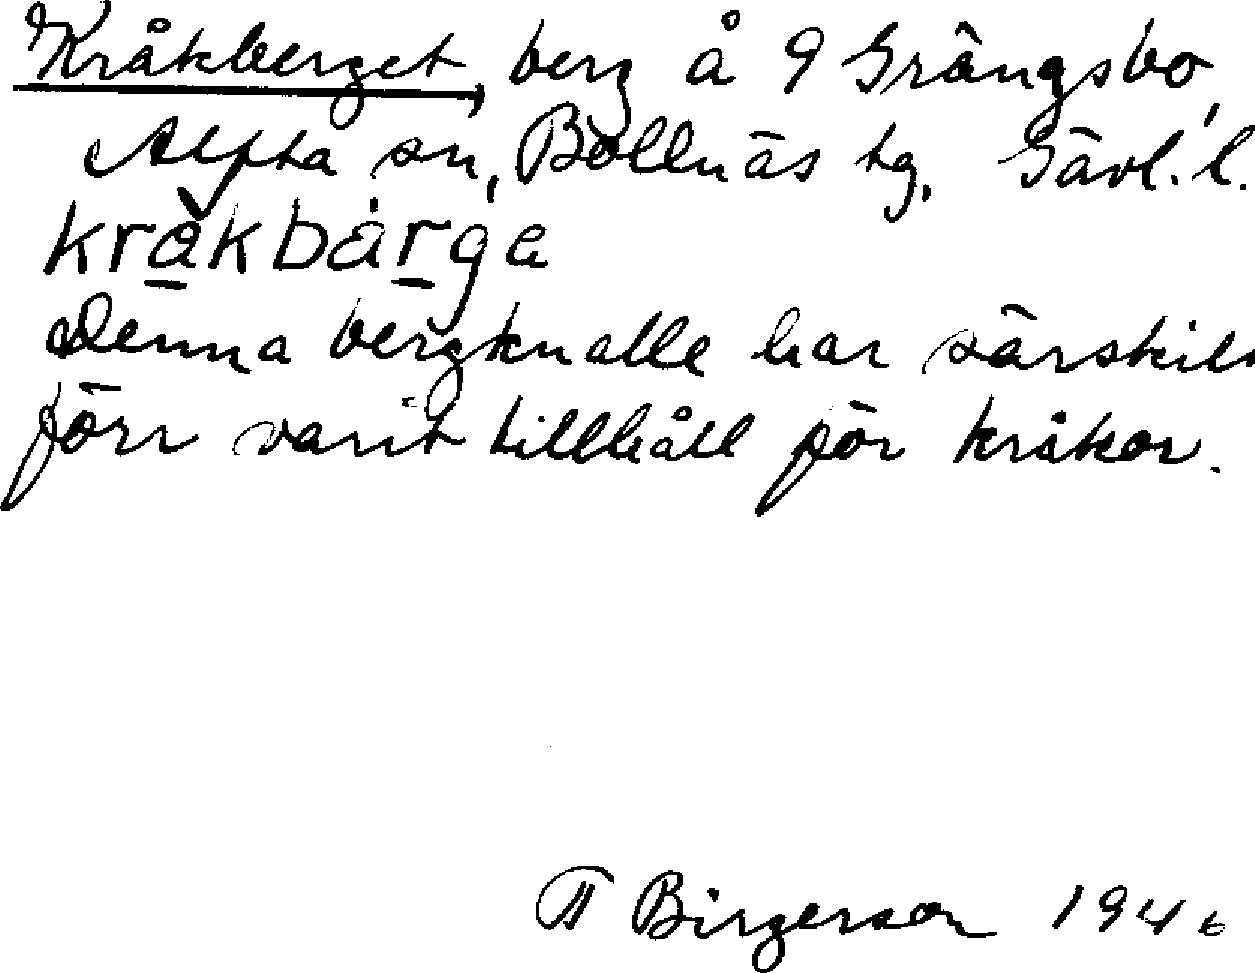 Kråkberget, berg å 9 Grängsbo,
Alfta sn, Bollnäs tg, Gävl. l.
kråkbärga
Denna bergknalle har särskilt
förr varit tillhåll för kråkor.
Birgerson 1946